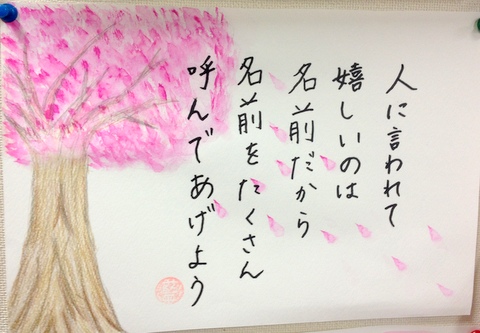 人に言われて
嬉しいのは
名前だから
名前をたくさん
呼んであげよう